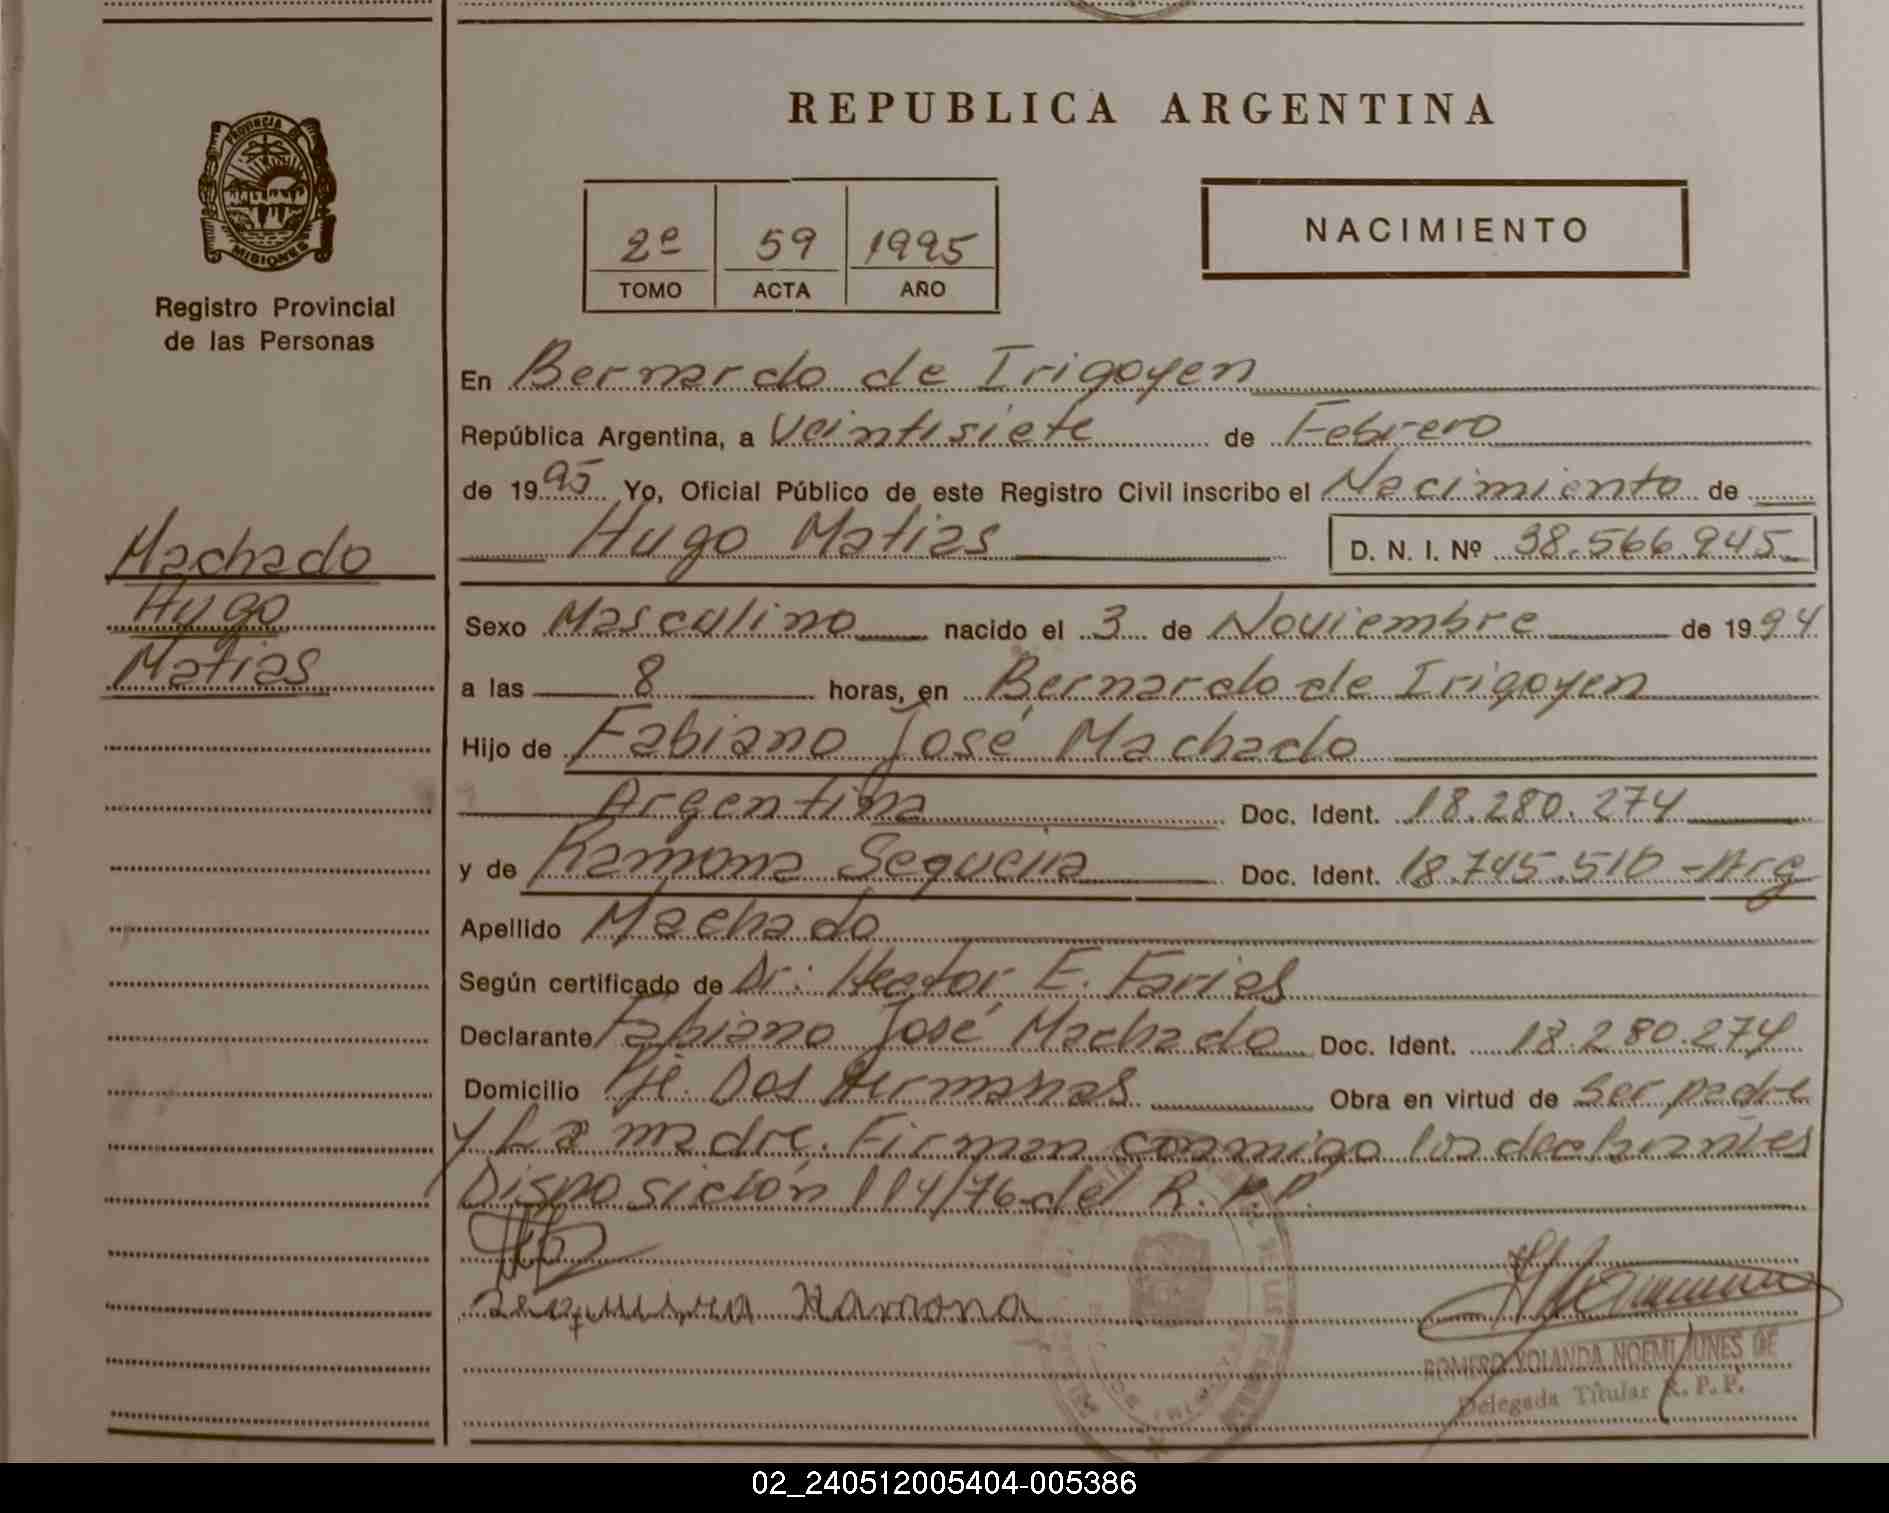 PROVINCIA DE
MISIONES
Registro Provincial
de las Personas
Machado
Hugo
Matias
REPUBLICA ARGENTINA
2º 59 1995
TOMO ACTA AÑO
NACIMIENTO
En Bernardo de Irigoyen
República Argentina, a Veintisiete de Febrero
de 1995 Yo, Oficial Público de este Registro Civil inscribo el Nacimiento de
Hugo Matias D. N. I. Nº 38.566.945
Sexo Masculino nacido el 3 de Noviembre de 1994
a las 8 horas, en Bernardo de Irigoyen
Hijo de Fabiano José Machado
Argentina Doc. Ident. 18.280.274
y de Ramona Sequeira Doc. Ident. 18.745.510 - Arg
Apellido Machado
Según certificado de Dr: Hector E. Farias
Declarante Fabiano José Machado Doc. Ident. 18.280.274
Domicilio Pje. Dos Hermanas Obra en virtud de ser padre
y La madre. Firman conmigo los declarantes
Disposición 114/76 del R. P. P.
Sequeira Ramona
ROMERO YOLANDA NOEMI JUNES DE
Delegada Titular R. P. P.
02_240512005404-005386